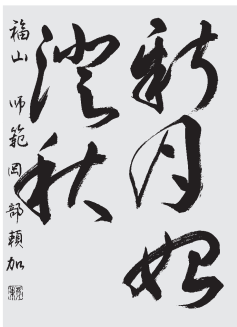 新月始
澄秋
福山 師範 岡部頼加